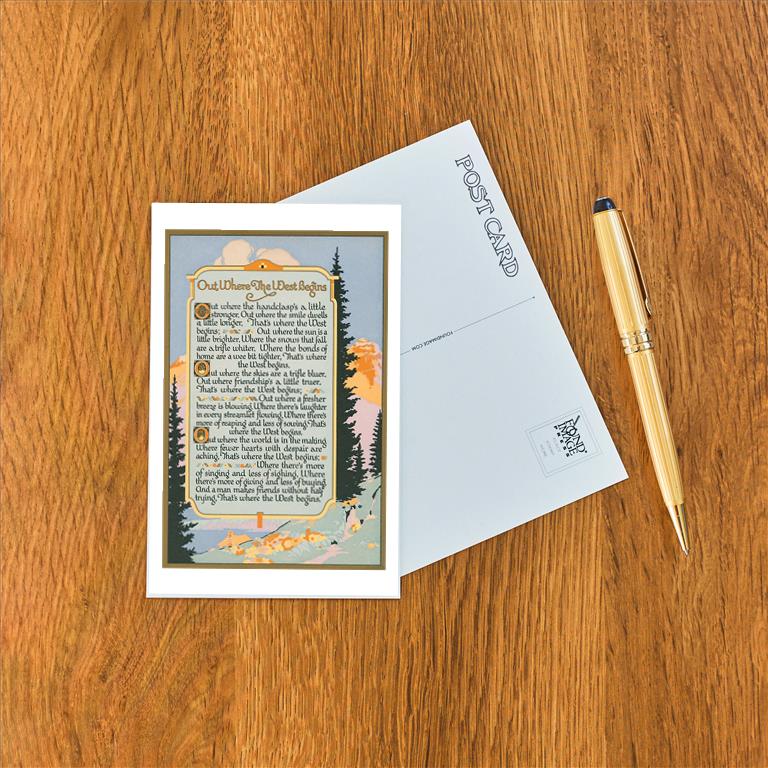 Out Where The West Begins
Out where the handclasp's a little
stronger, Out where the smile dwells
a little longer, That's where the West
begins; Out where the sun is a
little brighter, Where the snows that fall
are a trifle whiter, Where the bonds of
home are a wee bit tighter, That's where
the West begins.
Out where the skies are a trifle bluer,
Out where friendship's a little truer,
That's where the West begins;
Out where a fresher
breeze is blowing, Where there's laughter
in every streamlet flowing, Where there's
more of reaping and less of sowing, That's
where the West begins.
Out where the world is in the making
Where fewer hearts with despair are
aching, That's where the West begins;
Where there's more
of singing and less of sighing, Where
there's more of giving and less of buying,
And a man makes friends without half
trying, That's where the West begins.
POST CARD
FOUNDIMAGE.COM
FOUND
IMAGE